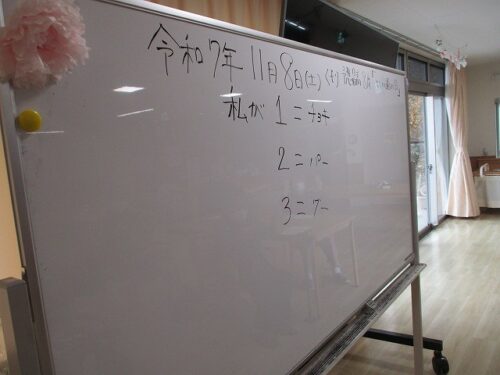 令和7年11月8日(土)
私が 1 = チョキ
2 = パー
3 = グー